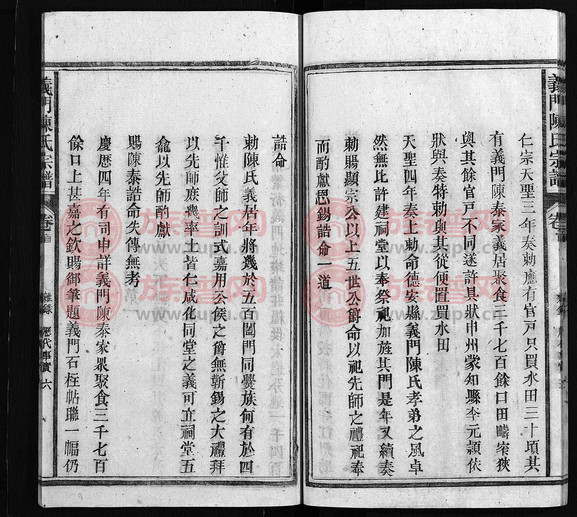 義門陳氏宗譜
仁宗天聖三年奏勅應有官戸只買水田三十頃其
有義門陳泰家義居聚食三千七百餘口田疇窄狹
與其餘官戸不同遂許具狀申州蒙知縣李元頴依
狀與奏特勅與其從便置買水田
天聖四年奏上勅命德安縣義門陳氏孝弟之風卓
然無比許建祠堂以奉祭祀加旌其門是年又續奏
勅賜顯宗公以上五世公傳命以祀先師之禮祀奉
而酌獻恩錫誥命一道
誥命
勅陳氏義居年將幾於五百闔門同爨族何有於四
千惟父師之訓式嘉用公侯之爵無靳錫之大禮拜
以先師庶幾率土皆仁咸化同堂之義可立祠堂五
龕以先師酌獻
賜陳泰誥命失傳無考
慶曆四年有司申詳義門陳泰家眾聚食三千七百
餘口上甚嘉之欽賜御筆題義門石柱帖聯一幅仍
義門陳氏宗譜
卷首
雜錄
歷代事實
六
族谱网
www.zupu.cn
族谱网
www.zupu.cn
族谱网
www.zupu.cn
族谱网
www.zupu.cn